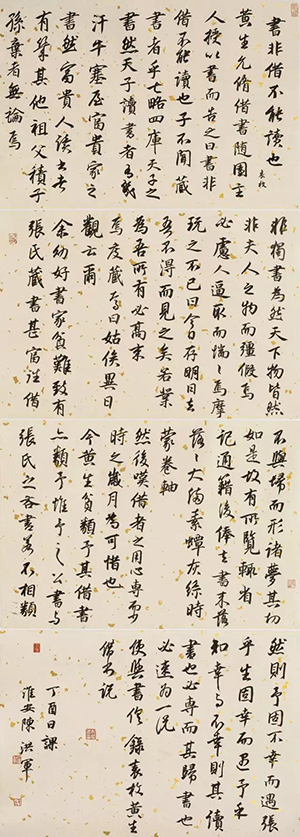 書非借不能讀也
袁枚
黃生允脩借書隨園主
人授以書而告之曰書非
借不能讀也子不聞藏
書者乎七略四庫天子之
書然天子讀書者有幾
汗牛塞屋富貴家之
書然富貴人讀書者
有幾其他祖父積子
孫棄者無論焉
非獨書為然天下物皆然
非夫人之物而強假焉
必慮人逼取而惴惴焉摩
玩之不已曰今日存明日去
吾不得而見之矣若業
為吾所有必高束
焉庋藏焉曰姑俟異日
觀云爾
余幼好書家貧難致有
張氏藏書甚富往借
不與歸而形諸夢其切
如是故有所覽輒省
記通籍後俸去書來落
落大滿素蟫灰絲時
蒙卷軸
然後嘆借者之用心專而少
時之歲月為可惜也
今黃生貧類予其借書
亦類予惟予之公書與
張氏之吝書若不相類
然則予固不幸而遇張
乎生固幸而遇予乎
知幸與不幸則其讀
書也必專而其歸書也
必速為一說
使與書俱 錄袁枚黃生
借書說
丁酉日課
淮安陳洪軍